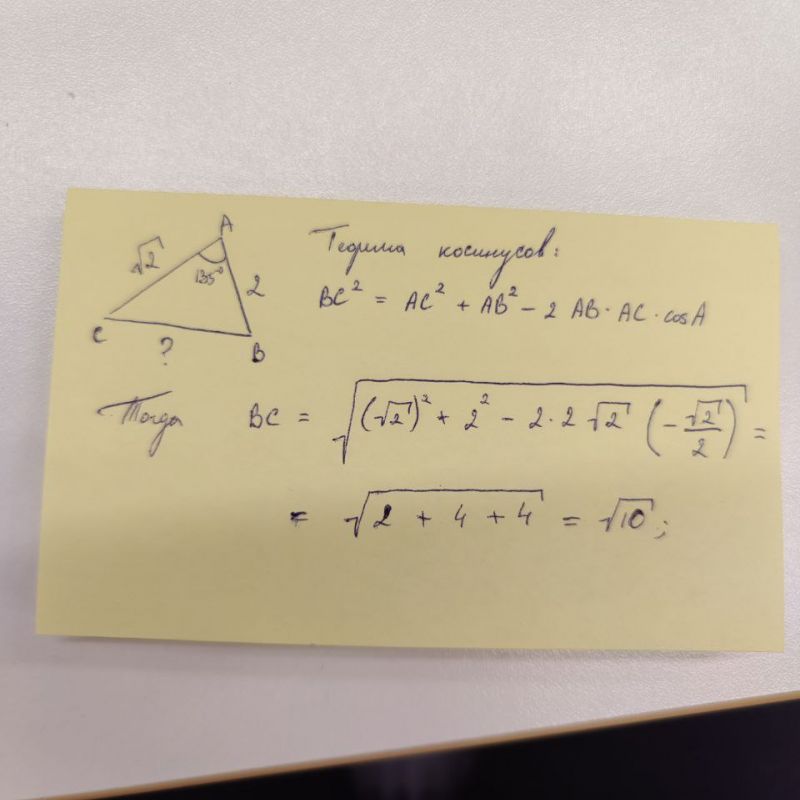 A
√2
135°
2
C
?
B
Теорема косинусов:
BC² = AC² + AB² - 2 AB · AC · cosA
Тогда BC = √((√2)² + 2² - 2 · 2 √2 (-√2/2)) =
= √(2 + 4 + 4) = √10;